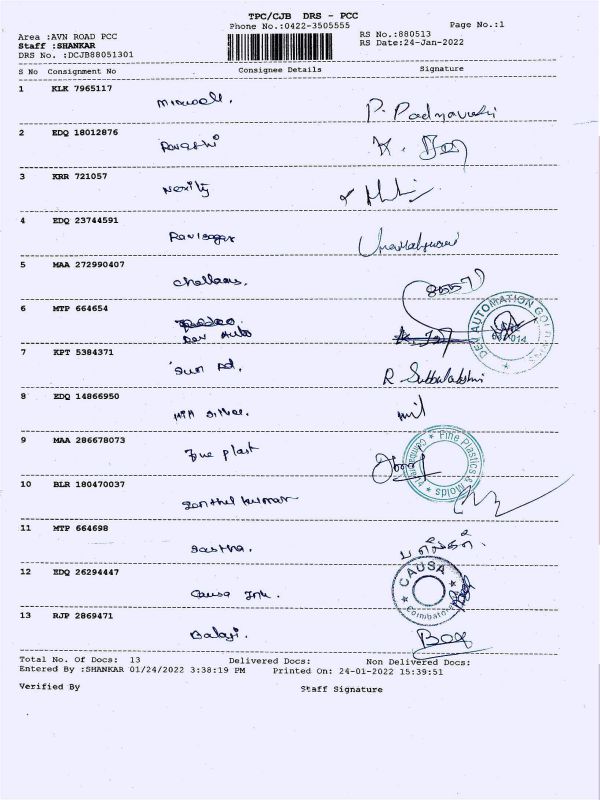 TPC/CJB DRS - PCC
Phone No.:0422-3505555
Page No.:1
Area :AVN ROAD PCC
RS No.:880513
Staff :SHANKAR
RS Date:24-Jan-2022
DRS No. :DCJB88051301
S No Consignment No Consignee Details Signature
1 KLK 7965117
P. Padmavathi
2 EDQ 18012876
3 KRR 721057
4 EDQ 23744591
Ravisagar
5 MAA 272990407
Challans.
6 MTP 664654
Dev Auto
DEV AUTOMATION
7 KPT 5384371
Sun Ad.
R Subbulakshmi
8 EDQ 14866950
9 MAA 286678073
Fine plast
Fine Plastics & Molds
10 BLR 180470037
Senthil kumar
11 MTP 664698
Sastha.
12 EDQ 26294447
Causa
CAUSA
Coimbatore
13 RJP 2869471
Balaji
Total No. Of Docs: 13 Delivered Docs: Non Delivered Docs:
Entered By :SHANKAR 01/24/2022 3:38:19 PM Printed On: 24-01-2022 15:39:51
Verified By Staff Signature